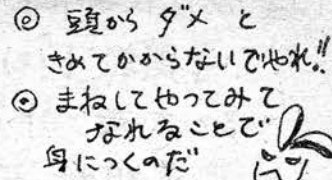 ◎ 頭から ダメ と
きめてかからないでやれ!!
◎ まねしてやってみて
なれることで
身につくのだ